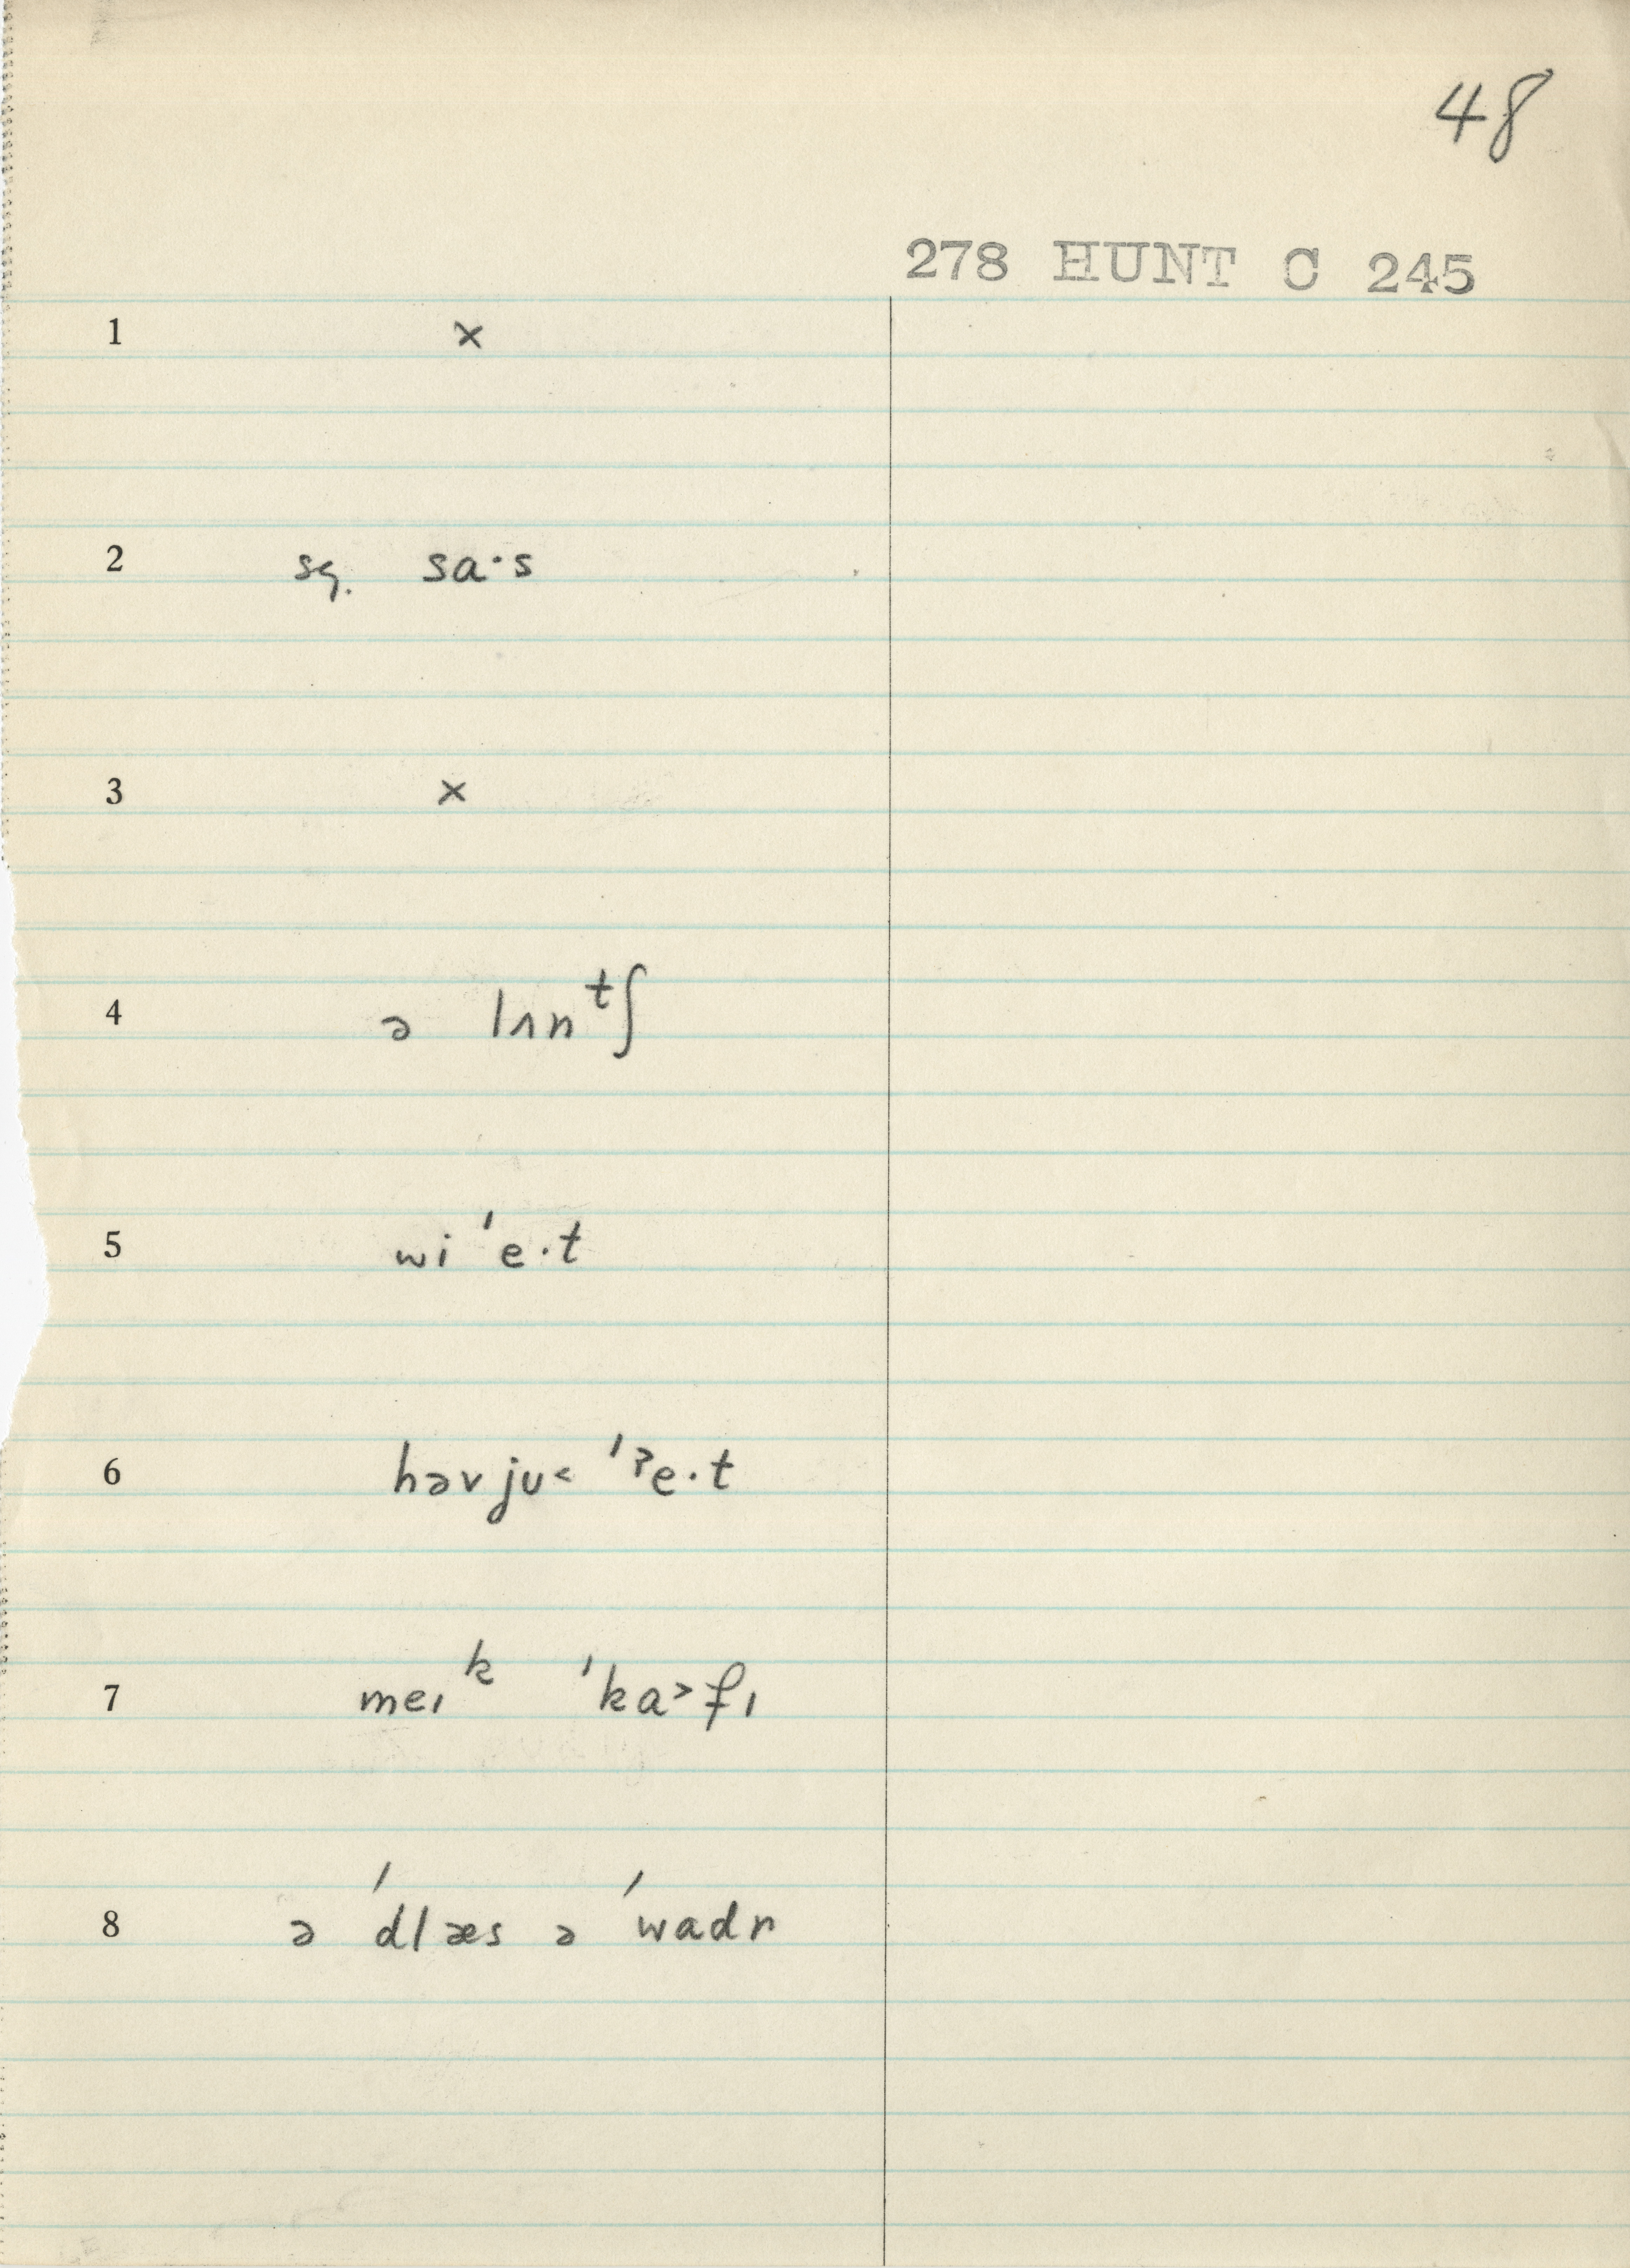 48
278 HUNT C 245
1 ×
2 sq. sa·s
3 ×
4 ə lʌnᵗʃ
5 wi 'e·t
6 həv ju˂ 'ˀe·t
7 meɪᵏ 'ka˃fɪ
8 ə 'dlæs ə 'wadɚ